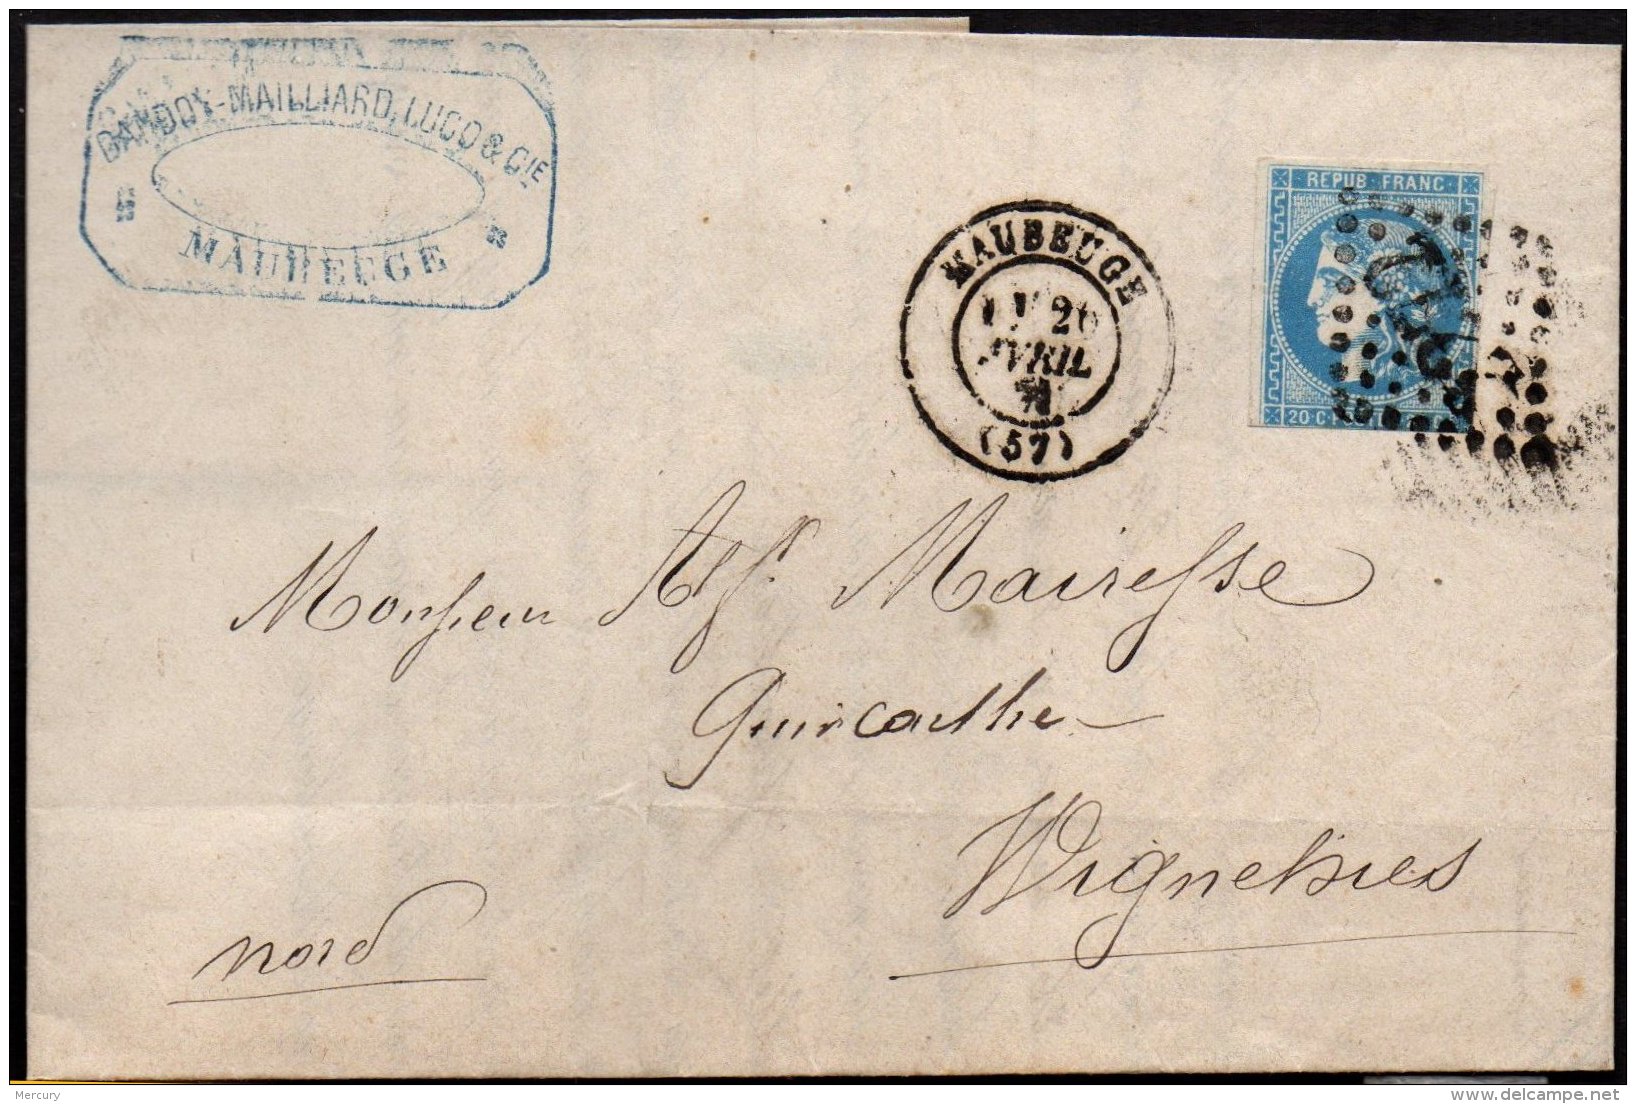 GANDOY-MAILLIARD, LUCQ & CIE
MAUBEUGE
MAUBEUGE
26
AVRIL
71
(57)
REPUB FRANC
20 C
Monsieur Alf. Mairesse
Quincaillier
Wignehies
nord
Mercury
www.delcampe.net